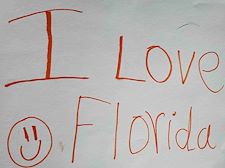 I LOVe
Florida